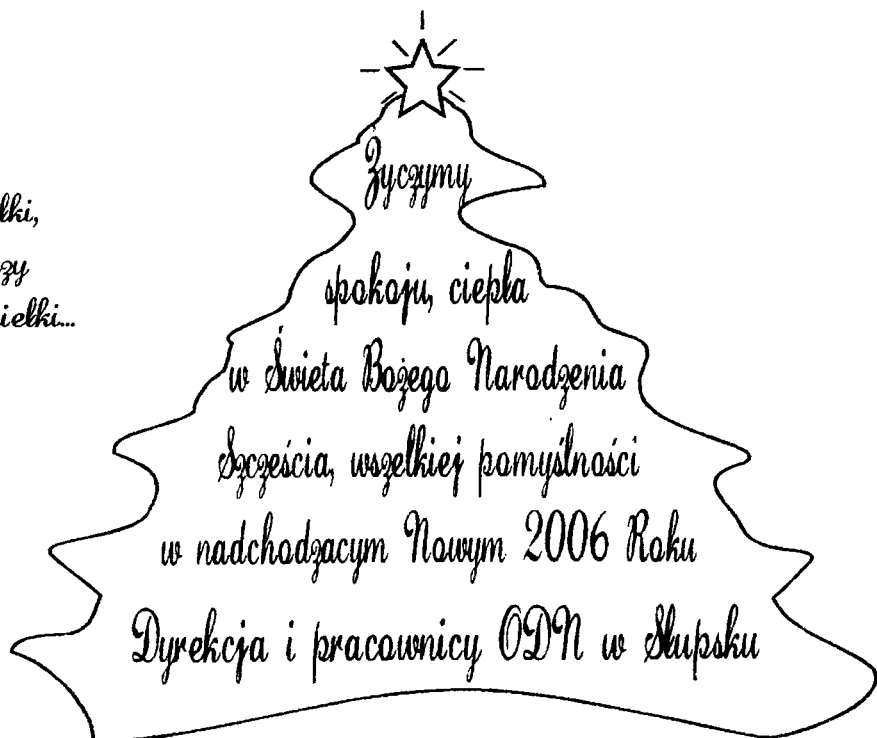 łki,
zy
ielki...
Życzymy
spokoju, ciepła
w Świeta Bożego Narodzenia
Szczęścia, wszelkiej pomyślności
w nadchodzacym Nowym 2006 Roku
Dyrekcja i pracownicy ODN w Słupsku